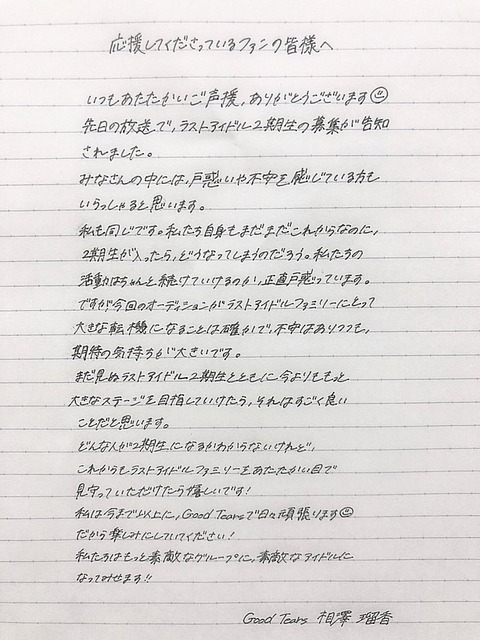 応援してくださっているファンの皆様へ
いつもあたたかいご声援、ありがとうございます☺
先日の放送で、ラストアイドル2期生の募集が告知
されました。
みなさんの中には、戸惑いや不安を感じている方も
いらっしゃると思います。
私も同じです。私たち自身もまだまだこれからなのに、
2期生が入ったら、どうなってしまうのだろう。私たちの
活動はちゃんと続けていけるのか、正直戸惑っています。
ですが今回のオーディションがラストアイドルファミリーにとって
大きな転機になることは確かで、不安はありつつも、
期待の気持ちが大きいです。
まだ見ぬラストアイドル2期生とともに今よりももっと
大きなステージを目指していけたら、それはすごく良い
ことだと思います。
どんな人が2期生になるかわからないけれど、
これからもラストアイドルファミリーをあたたかい目で
見守っていただけたら嬉しいです!
私は今まで以上に、Good Tearsで日々頑張ります☺
だから楽しみにしていてください!
私たちはもっと素敵なグループに、素敵なアイドルに
なってみせます!!
Good Tears 相澤 瑠香